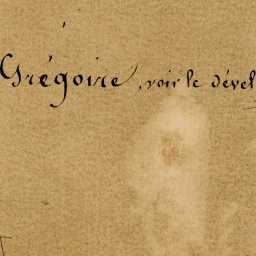 Grégoire, voir le dével